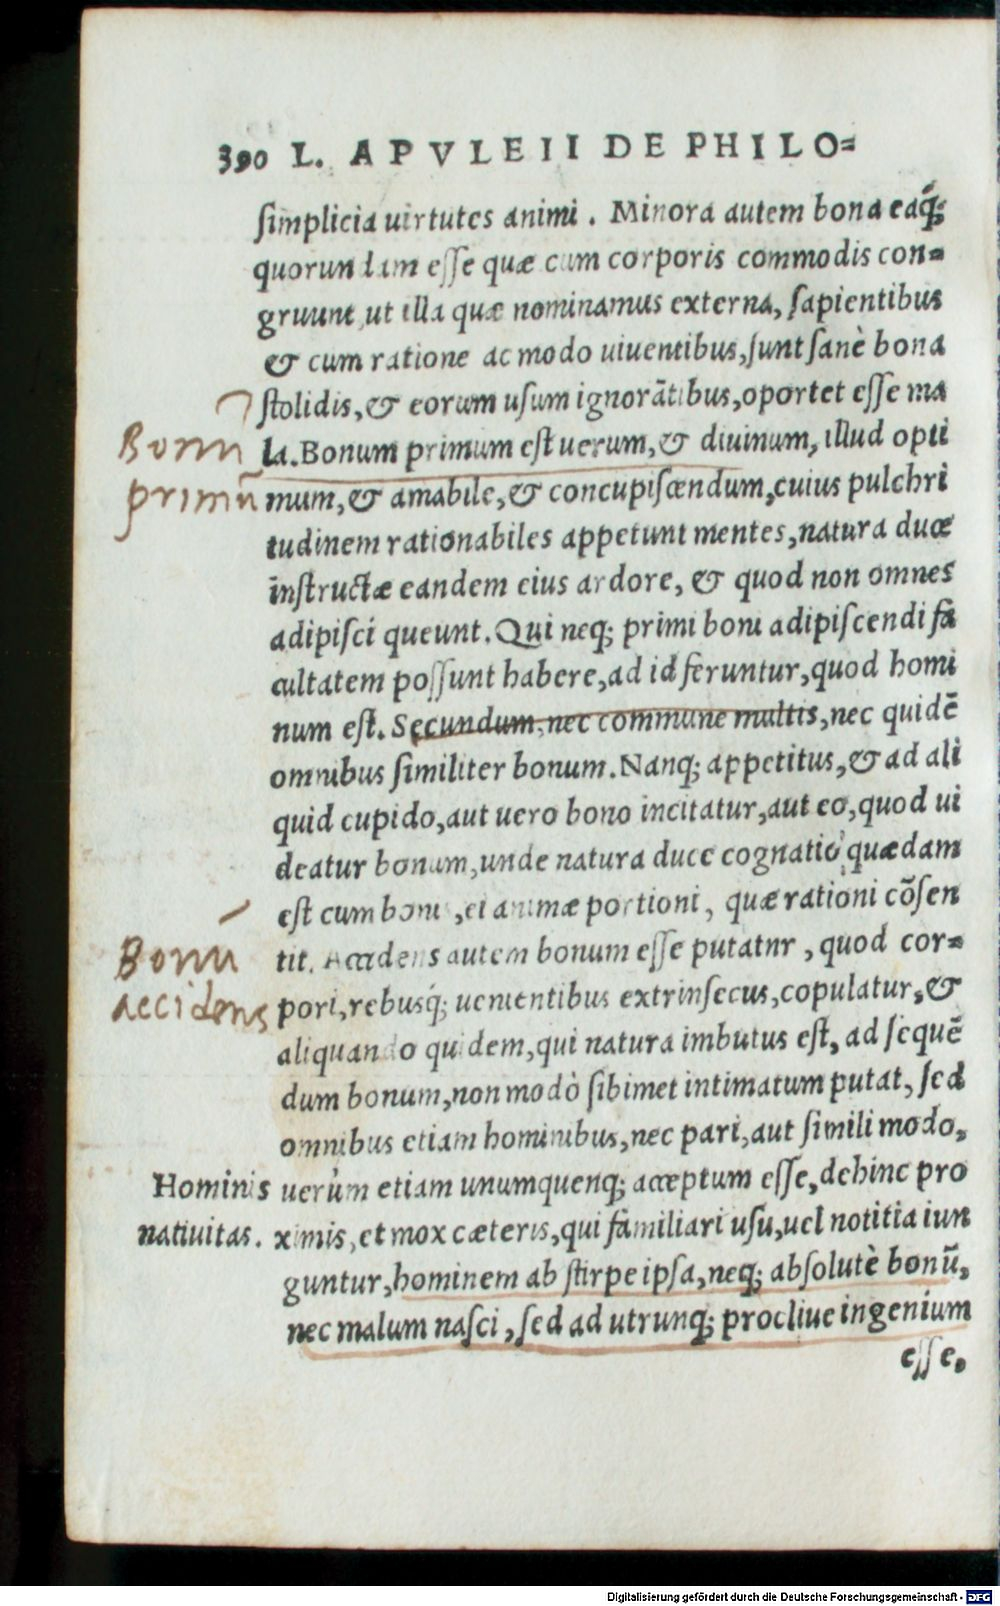 390 L. APVLEII DE PHILO=
ſimplicia uirtutes animi. Minora autem bona eáq́;
quorundam eſſe quæ cum corporis commodis con=
gruunt, ut illa quæ nominamus externa, ſapientibus
& cum ratione ac modo uiuentibus, ſunt ſanè bona
ſtolidis, & eorum uſum ignorātibus, oportet eſſe ma
la. Bonum primum eſt uerum, & diuinum, illud opti
Bonū
primū
mum, & amabile, & concupiſcendum, cuius pulchri
tudinem rationabiles appetunt mentes, natura duce
inſtructæ eandem eius ardore, & quod non omnes
adipiſci queunt. Qui neq; primi boni adipiſcendi fa
cultatem poſſunt habere, ad id feruntur, quod homi
num eſt. Secundum, nec commune multis, nec quidē
omnibus ſimiliter bonum. Nanq; appetitus, & ad ali
quid cupido, aut uero bono incitatur, aut eo, quod ui
deatur bonum, unde natura duce cognatio quædam
eſt cum bonis, ei animæ portioni, quæ rationi cōſen
tit. Accidens autem bonum eſſe putatnr, quod cor=
Bonū
accidens
pori, rebusq́; uenientibus extrinſecus, copulatur, &
aliquando quidem, qui natura imbutus eſt, ad ſequē
dum bonum, non modò ſibimet intimatum putat, ſed
omnibus etiam hominibus, nec pari, aut ſimili modo,
Hominis
natiuitas.
uerùm etiam unumquenq; acceptum eſſe, dehinc pro
ximis, et mox cæteris, qui familiari uſu, uel notitia iun
guntur, hominem ab ſtirpe ipſa, neq; abſolutè bonū,
nec malum naſci, ſed ad utrunq; procliue ingenium
eſſe.
Digitalisierung gefördert durch die Deutsche Forschungsgemeinschaft - DFG